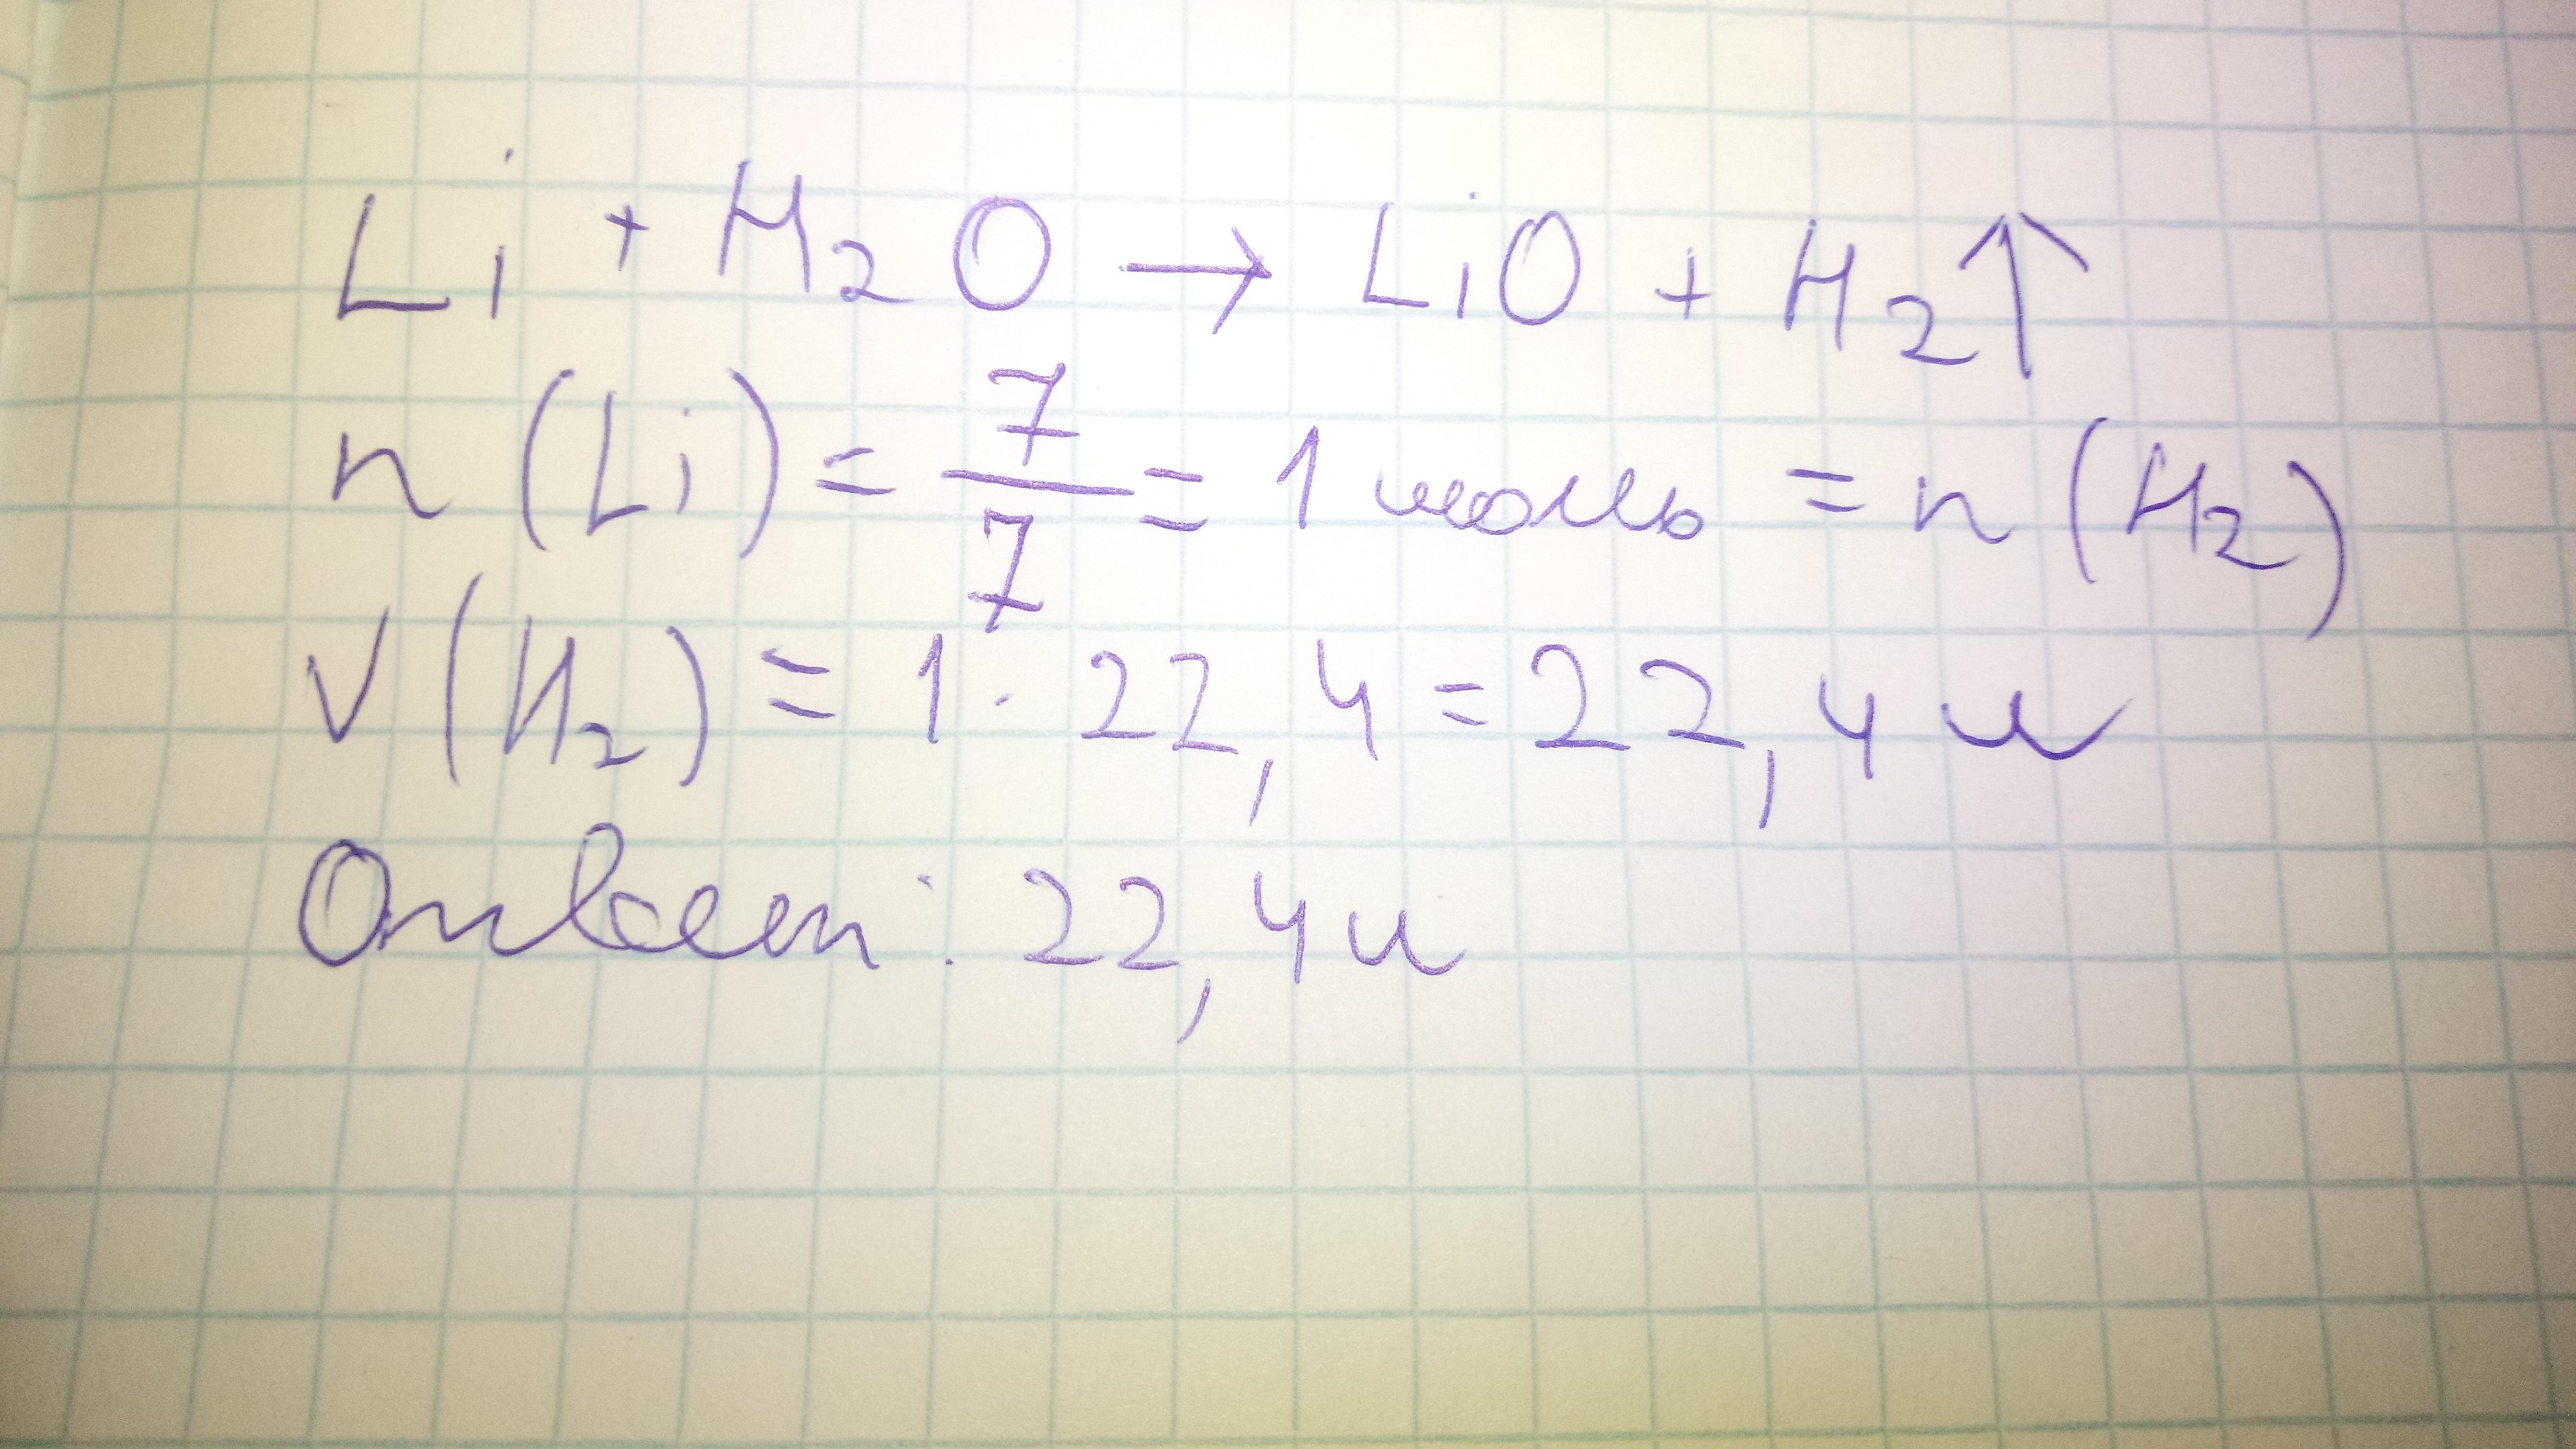 Li + H₂O → LiO + H₂↑
n (Li) = 7/7 = 1 моль = n (H₂)
V (H₂) = 1 · 22,4 = 22,4 л
Ответ: 22,4 л